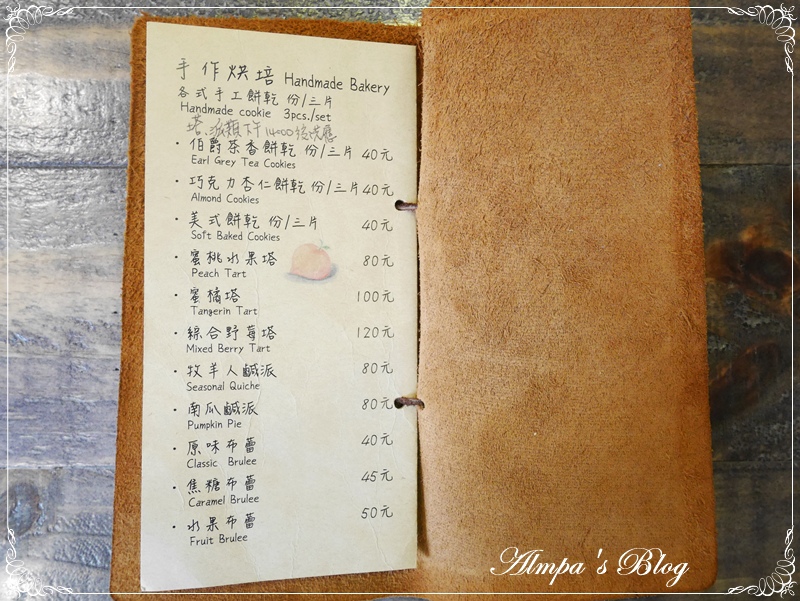 手作烘培 Handmade Bakery
各式手工餅乾 份/三片
Handmade cookie 3pcs./set
塔.派類下午14:00後供應
・伯爵茶香餅乾 份/三片 40元
Earl Grey Tea Cookies
・巧克力杏仁餅乾 份/三片 40元
Almond Cookies
・美式餅乾 份/三片 40元
Soft Baked Cookies
・蜜桃水果塔 80元
Peach Tart
・蜜橘塔 100元
Tangerin Tart
・綜合野莓塔 120元
Mixed Berry Tart
・牧羊人鹹派 80元
Seasonal Quiche
・南瓜鹹派 80元
Pumpkin Pie
・原味布蕾 40元
Classic Brulee
・焦糖布蕾 45元
Caramel Brulee
・水果布蕾 50元
Fruit Brulee
Almpa's Blog